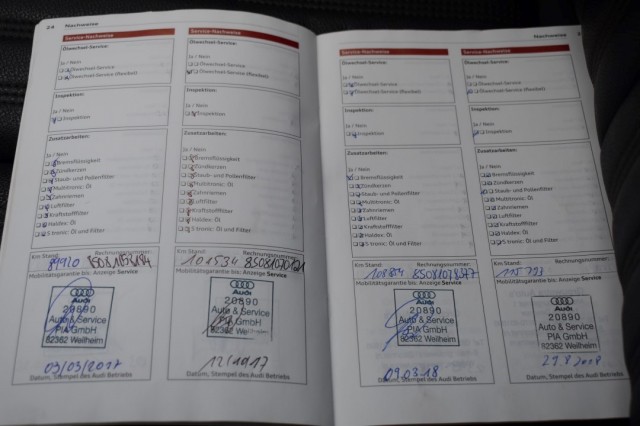 24 Nachweise
Service-Nachweise
Ölwechsel-Service:
Ja / Nein
Ölwechsel-Service
Ölwechsel-Service (flexibel)
Inspektion:
Ja / Nein
Inspektion
Zusatzarbeiten:
Ja / Nein
Bremsflüssigkeit
Zündkerzen
Staub- und Pollenfilter
Multitronic: Öl
Zahnriemen
Luftfilter
Kraftstofffilter
Haldex: Öl
S tronic: Öl und Filter
Km Stand: Rechnungsnummer:
89920
Mobilitätsgarantie bis: Anzeige Service
Audi
20890
Auto & Service
PIA GmbH
82362 Weilheim
03/03/2017
Datum, Stempel des Audi Betriebs
Service-Nachweise
Ölwechsel-Service:
Ja / Nein
Ölwechsel-Service
Ölwechsel-Service (flexibel)
Inspektion:
Ja / Nein
Inspektion
Zusatzarbeiten:
Ja / Nein
Bremsflüssigkeit
Zündkerzen
Staub- und Pollenfilter
Multitronic: Öl
Zahnriemen
Luftfilter
Kraftstofffilter
Haldex: Öl
S tronic: Öl und Filter
Km Stand: Rechnungsnummer:
101534
Mobilitätsgarantie bis: Anzeige Service
Audi
20890
Auto & Service
PIA GmbH
82362 Weilheim
Datum, Stempel des Audi Betriebs
Nachweise
Service-Nachweise
Ölwechsel-Service:
Ja / Nein
Ölwechsel-Service
Ölwechsel-Service (flexibel)
Inspektion:
Ja / Nein
Inspektion
Zusatzarbeiten:
Ja / Nein
Bremsflüssigkeit
Zündkerzen
Staub- und Pollenfilter
Multitronic: Öl
Zahnriemen
Luftfilter
Kraftstofffilter
Haldex: Öl
S tronic: Öl und Filter
Km Stand: Rechnungsnummer:
Mobilitätsgarantie bis: Anzeige Service
Audi
20890
Auto & Service
PIA GmbH
82362 Weilheim
09.03.18
Datum, Stempel des Audi Betriebs
Service-Nachweise
Ölwechsel-Service:
Ja / Nein
Ölwechsel-Service
Ölwechsel-Service (flexibel)
Inspektion:
Ja / Nein
Inspektion
Zusatzarbeiten:
Ja / Nein
Bremsflüssigkeit
Zündkerzen
Staub- und Pollenfilter
Multitronic: Öl
Zahnriemen
Luftfilter
Kraftstofffilter
Haldex: Öl
S tronic: Öl und Filter
Km Stand: Rechnungsnummer:
Mobilitätsgarantie bis: Anzeige Service
Audi
20890
Auto & Service
PIA GmbH
82362 Weilheim
Datum, Stempel des Audi Betriebs